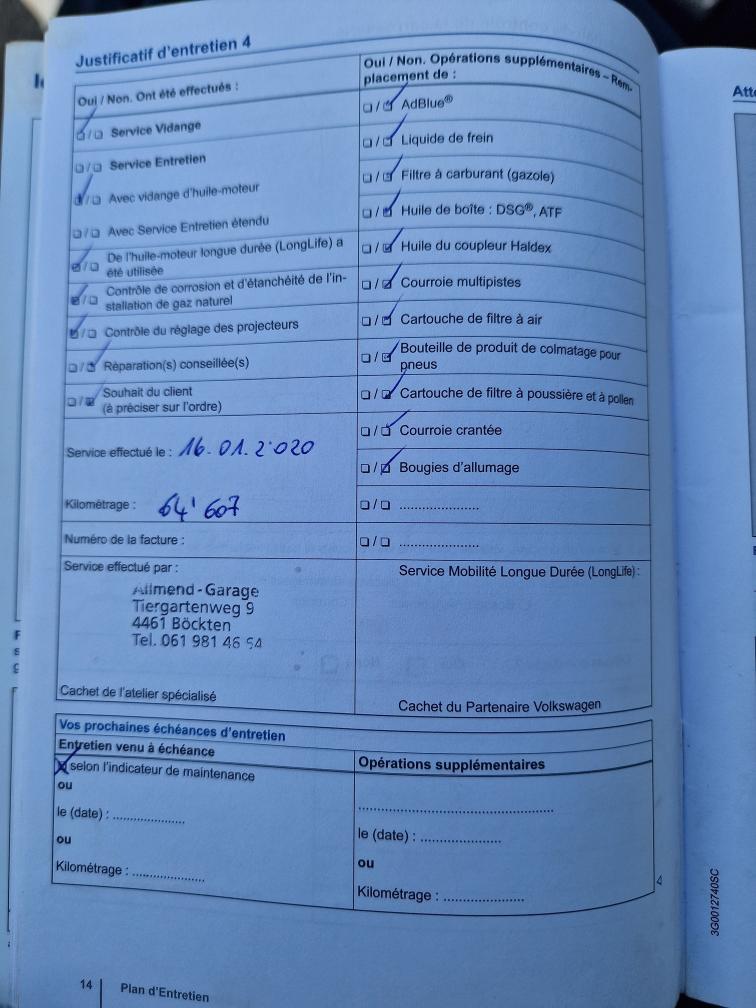 Justificatif d'entretien 4
Oui / Non. Ont été effectués :
☑ / ☐ Service Vidange
☐ / ☐ Service Entretien
☑ / ☐ Avec vidange d'huile-moteur
☐ / ☐ Avec Service Entretien étendu
☑ / ☐ De l'huile-moteur longue durée (LongLife) a
été utilisée
☑ / ☐ Contrôle de corrosion et d'étanchéité de l'in-
stallation de gaz naturel
☑ / ☐ Contrôle du réglage des projecteurs
☐ / ☑ Réparation(s) conseillée(s)
☐ / ☑ Souhait du client
(à préciser sur l'ordre)
Service effectué le : 16.01.2020
Kilométrage : 64'607
Numéro de la facture :
Service effectué par :
Allmend-Garage
Tiergartenweg 9
4461 Böckten
Tel. 061 981 46 54
Cachet de l'atelier spécialisé
Oui / Non. Opérations supplémentaires – Rem-
placement de :
☐ / ☑ AdBlue®
☐ / ☑ Liquide de frein
☐ / ☑ Filtre à carburant (gazole)
☐ / ☑ Huile de boîte : DSG®, ATF
☐ / ☑ Huile du coupleur Haldex
☐ / ☑ Courroie multipistes
☐ / ☑ Cartouche de filtre à air
☐ / ☑ Bouteille de produit de colmatage pour
pneus
☐ / ☑ Cartouche de filtre à poussière et à pollen
☐ / ☑ Courroie crantée
☐ / ☑ Bougies d'allumage
☐ / ☐ .....................
☐ / ☐ .....................
Service Mobilité Longue Durée (LongLife) :
Cachet du Partenaire Volkswagen
Vos prochaines échéances d'entretien
Entretien venu à échéance
☒ selon l'indicateur de maintenance
ou
le (date) : ...................
ou
Kilométrage : ...................
Opérations supplémentaires
..................................................
le (date) : .....................
ou
Kilométrage : .....................
14 | Plan d'Entretien
3G0012740SC
Att